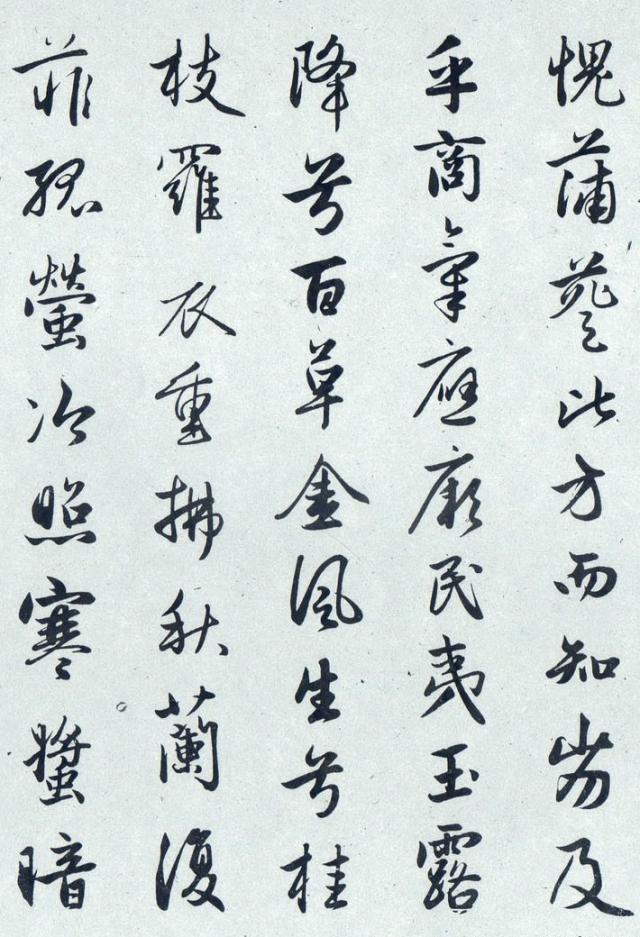 愧蒲葵此方而知劣及
乎商氣應厥民夷玉露
降兮百草金風生兮桂
枝羅衣重拂秋蘭復
菲孤螢冷照寒螿暗